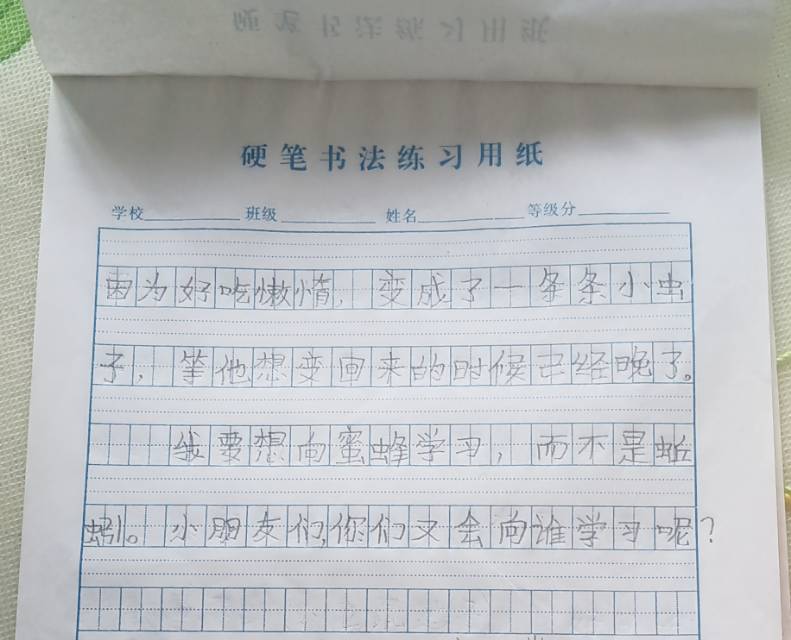 硬笔书法练习用纸
学校 班级 姓名 等级分
因为好吃懒惰，变成了一条条小虫
子，等他想变回来的时候已经晚了。
我要想向蜜蜂学习，而不是蚯
蚓。小朋友们，你们又会向谁学习呢？